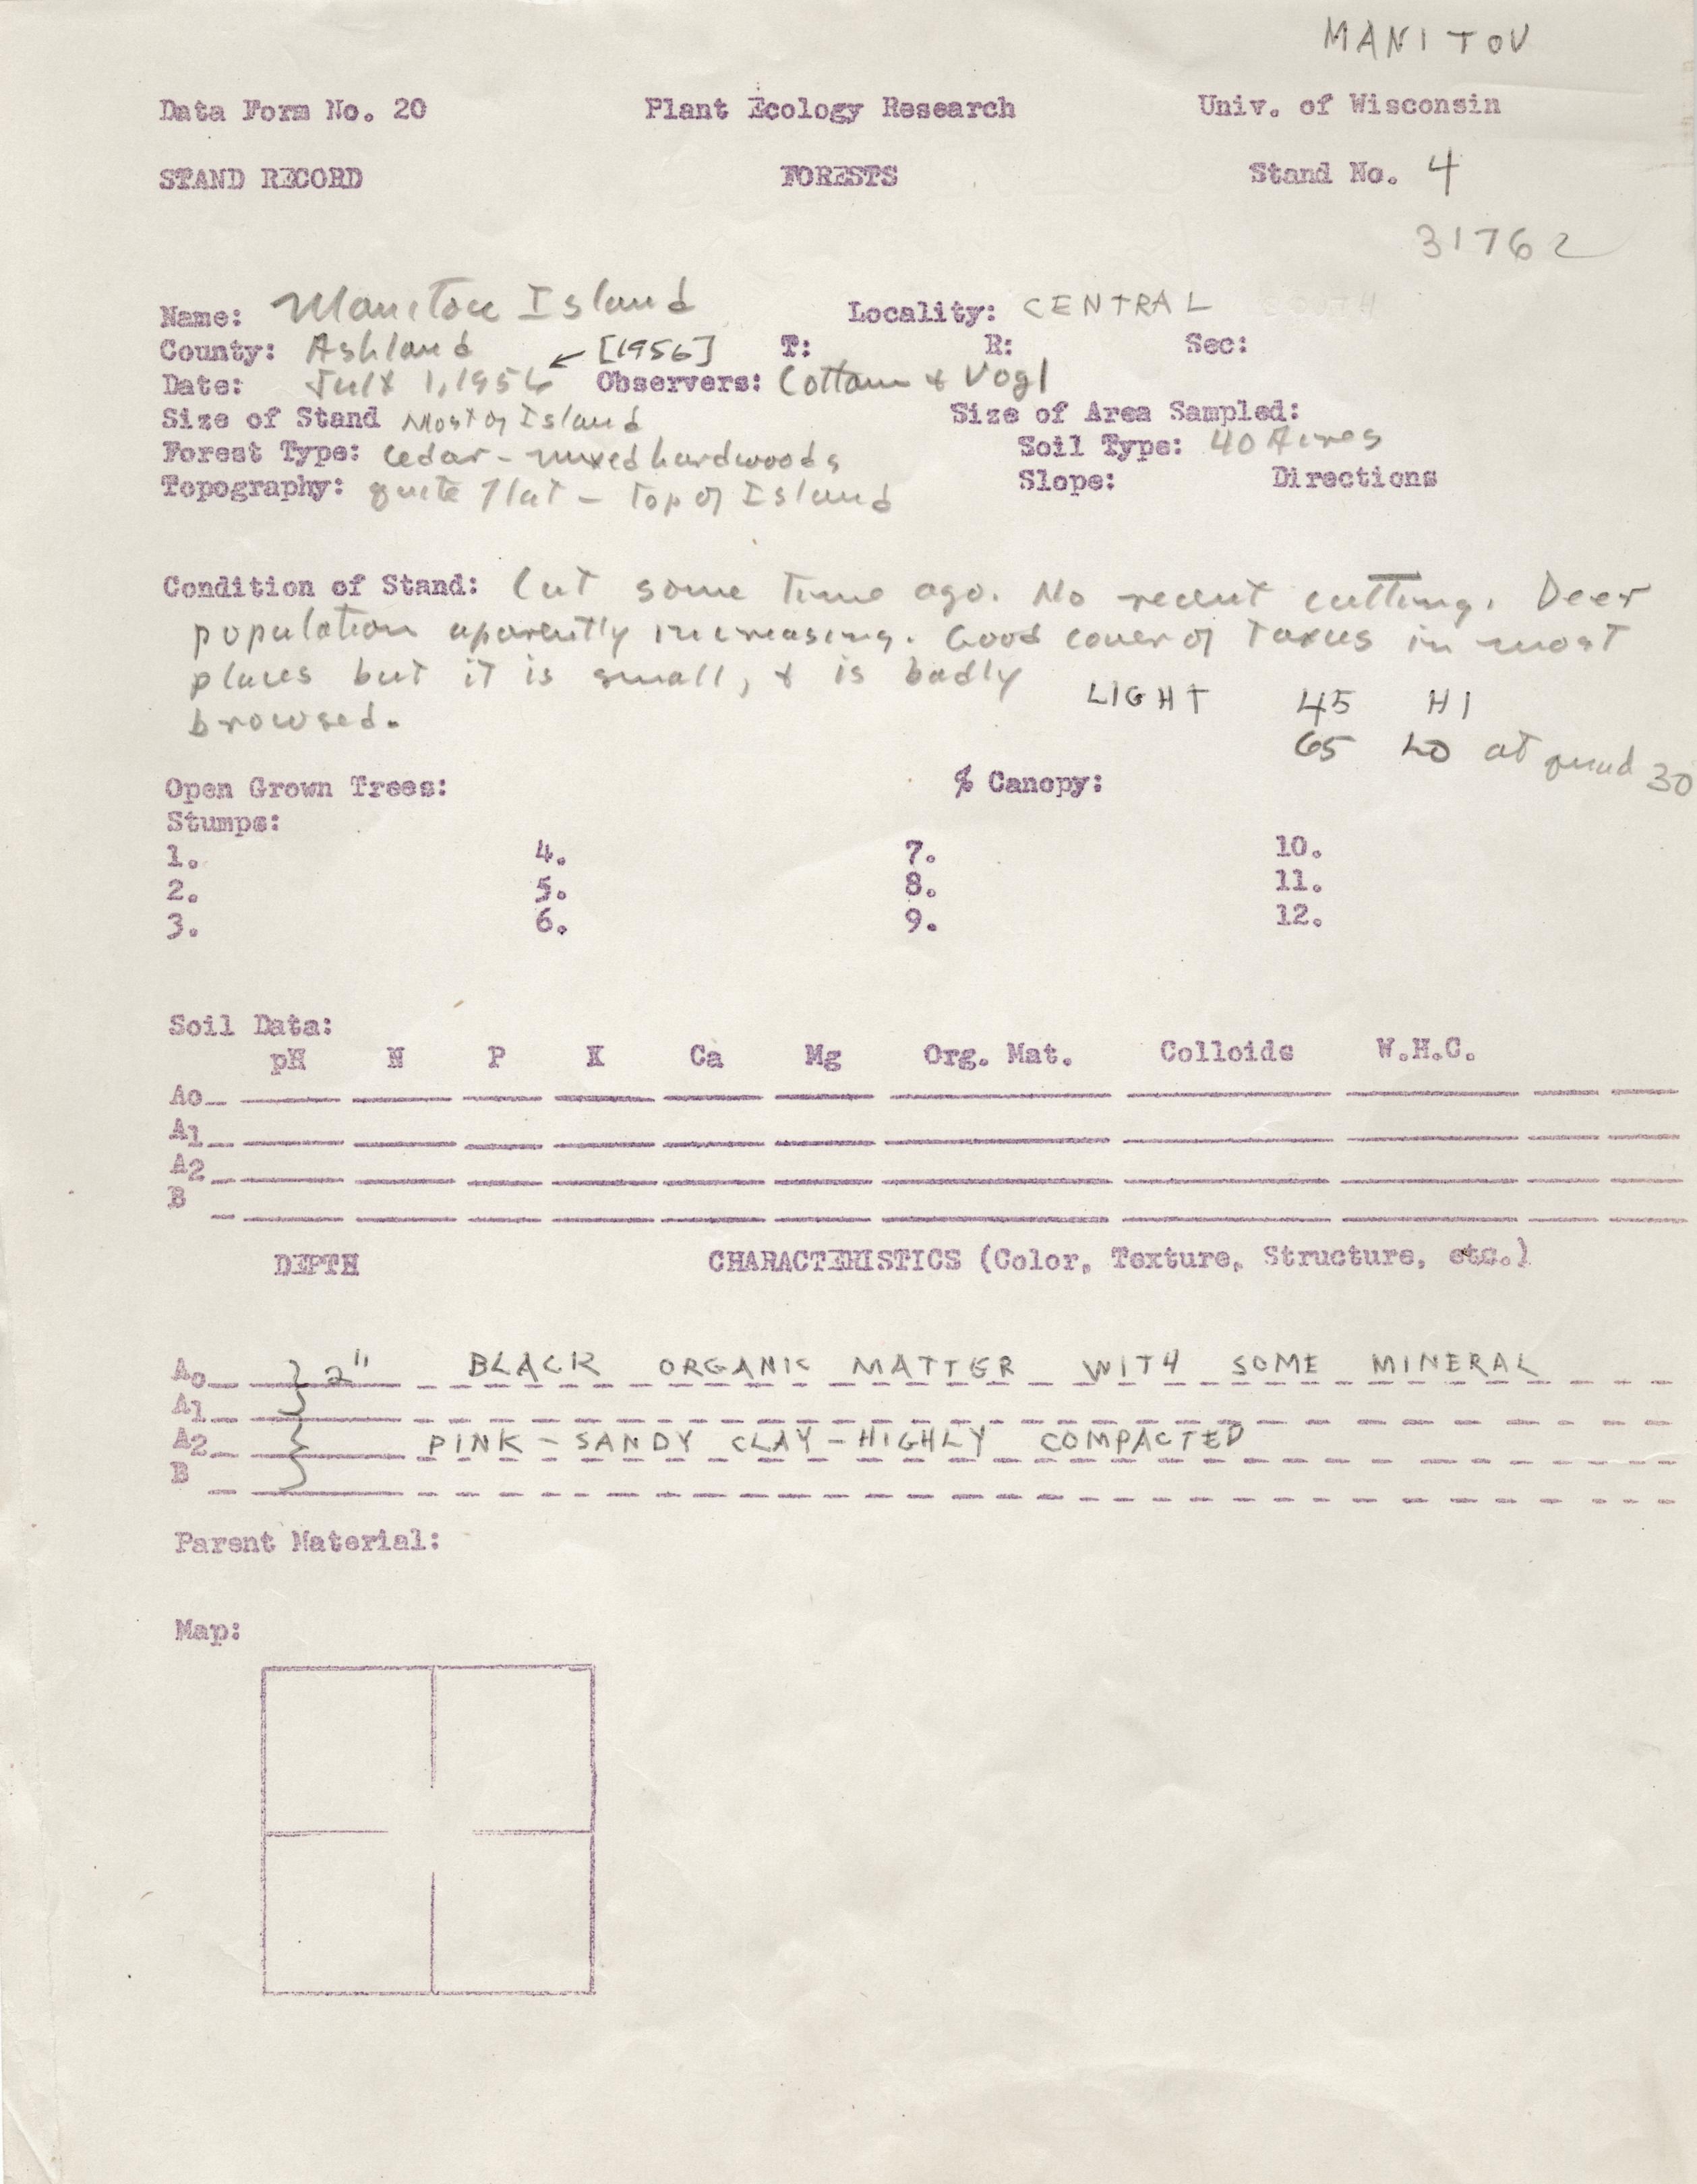 MANITOU
Data Form No. 20 Plant Ecology Research Univ. of Wisconsin
STAND RECORD FORESTS Stand No. 4
31762
Name: Manitou Island Locality: CENTRAL
County: Ashland ← [1956] T: R: Sec:
Date: July 1, 1956 Observers: Cottam & Vogl
Size of Stand Most of Island Size of Area Sampled:
Forest Type: Cedar - mixed hardwoods Soil Type: 40 Acres
Topography: quite flat - top of Island Slope: Directions
Condition of Stand: Cut some time ago. No recent cutting. Deer
population aparently increasing. Good cover of Taxus in most
places but it is small, & is badly LIGHT 45 HI
browsed. 65 LO at quad 30
Open Grown Trees: % Canopy:
Stumps:
1. 4. 7. 10.
2. 5. 8. 11.
3. 6. 9. 12.
Soil Data:
pH N P K Ca Mg Org. Mat. Colloids W.H.C.
Ao
A1
A2
B
DEPTH CHARACTERISTICS (Color, Texture, Structure, etc.)
Ao 2" BLACK ORGANIC MATTER WITH SOME MINERAL
A1
A2 PINK - SANDY CLAY - HIGHLY COMPACTED
B
Parent Material:
Map: